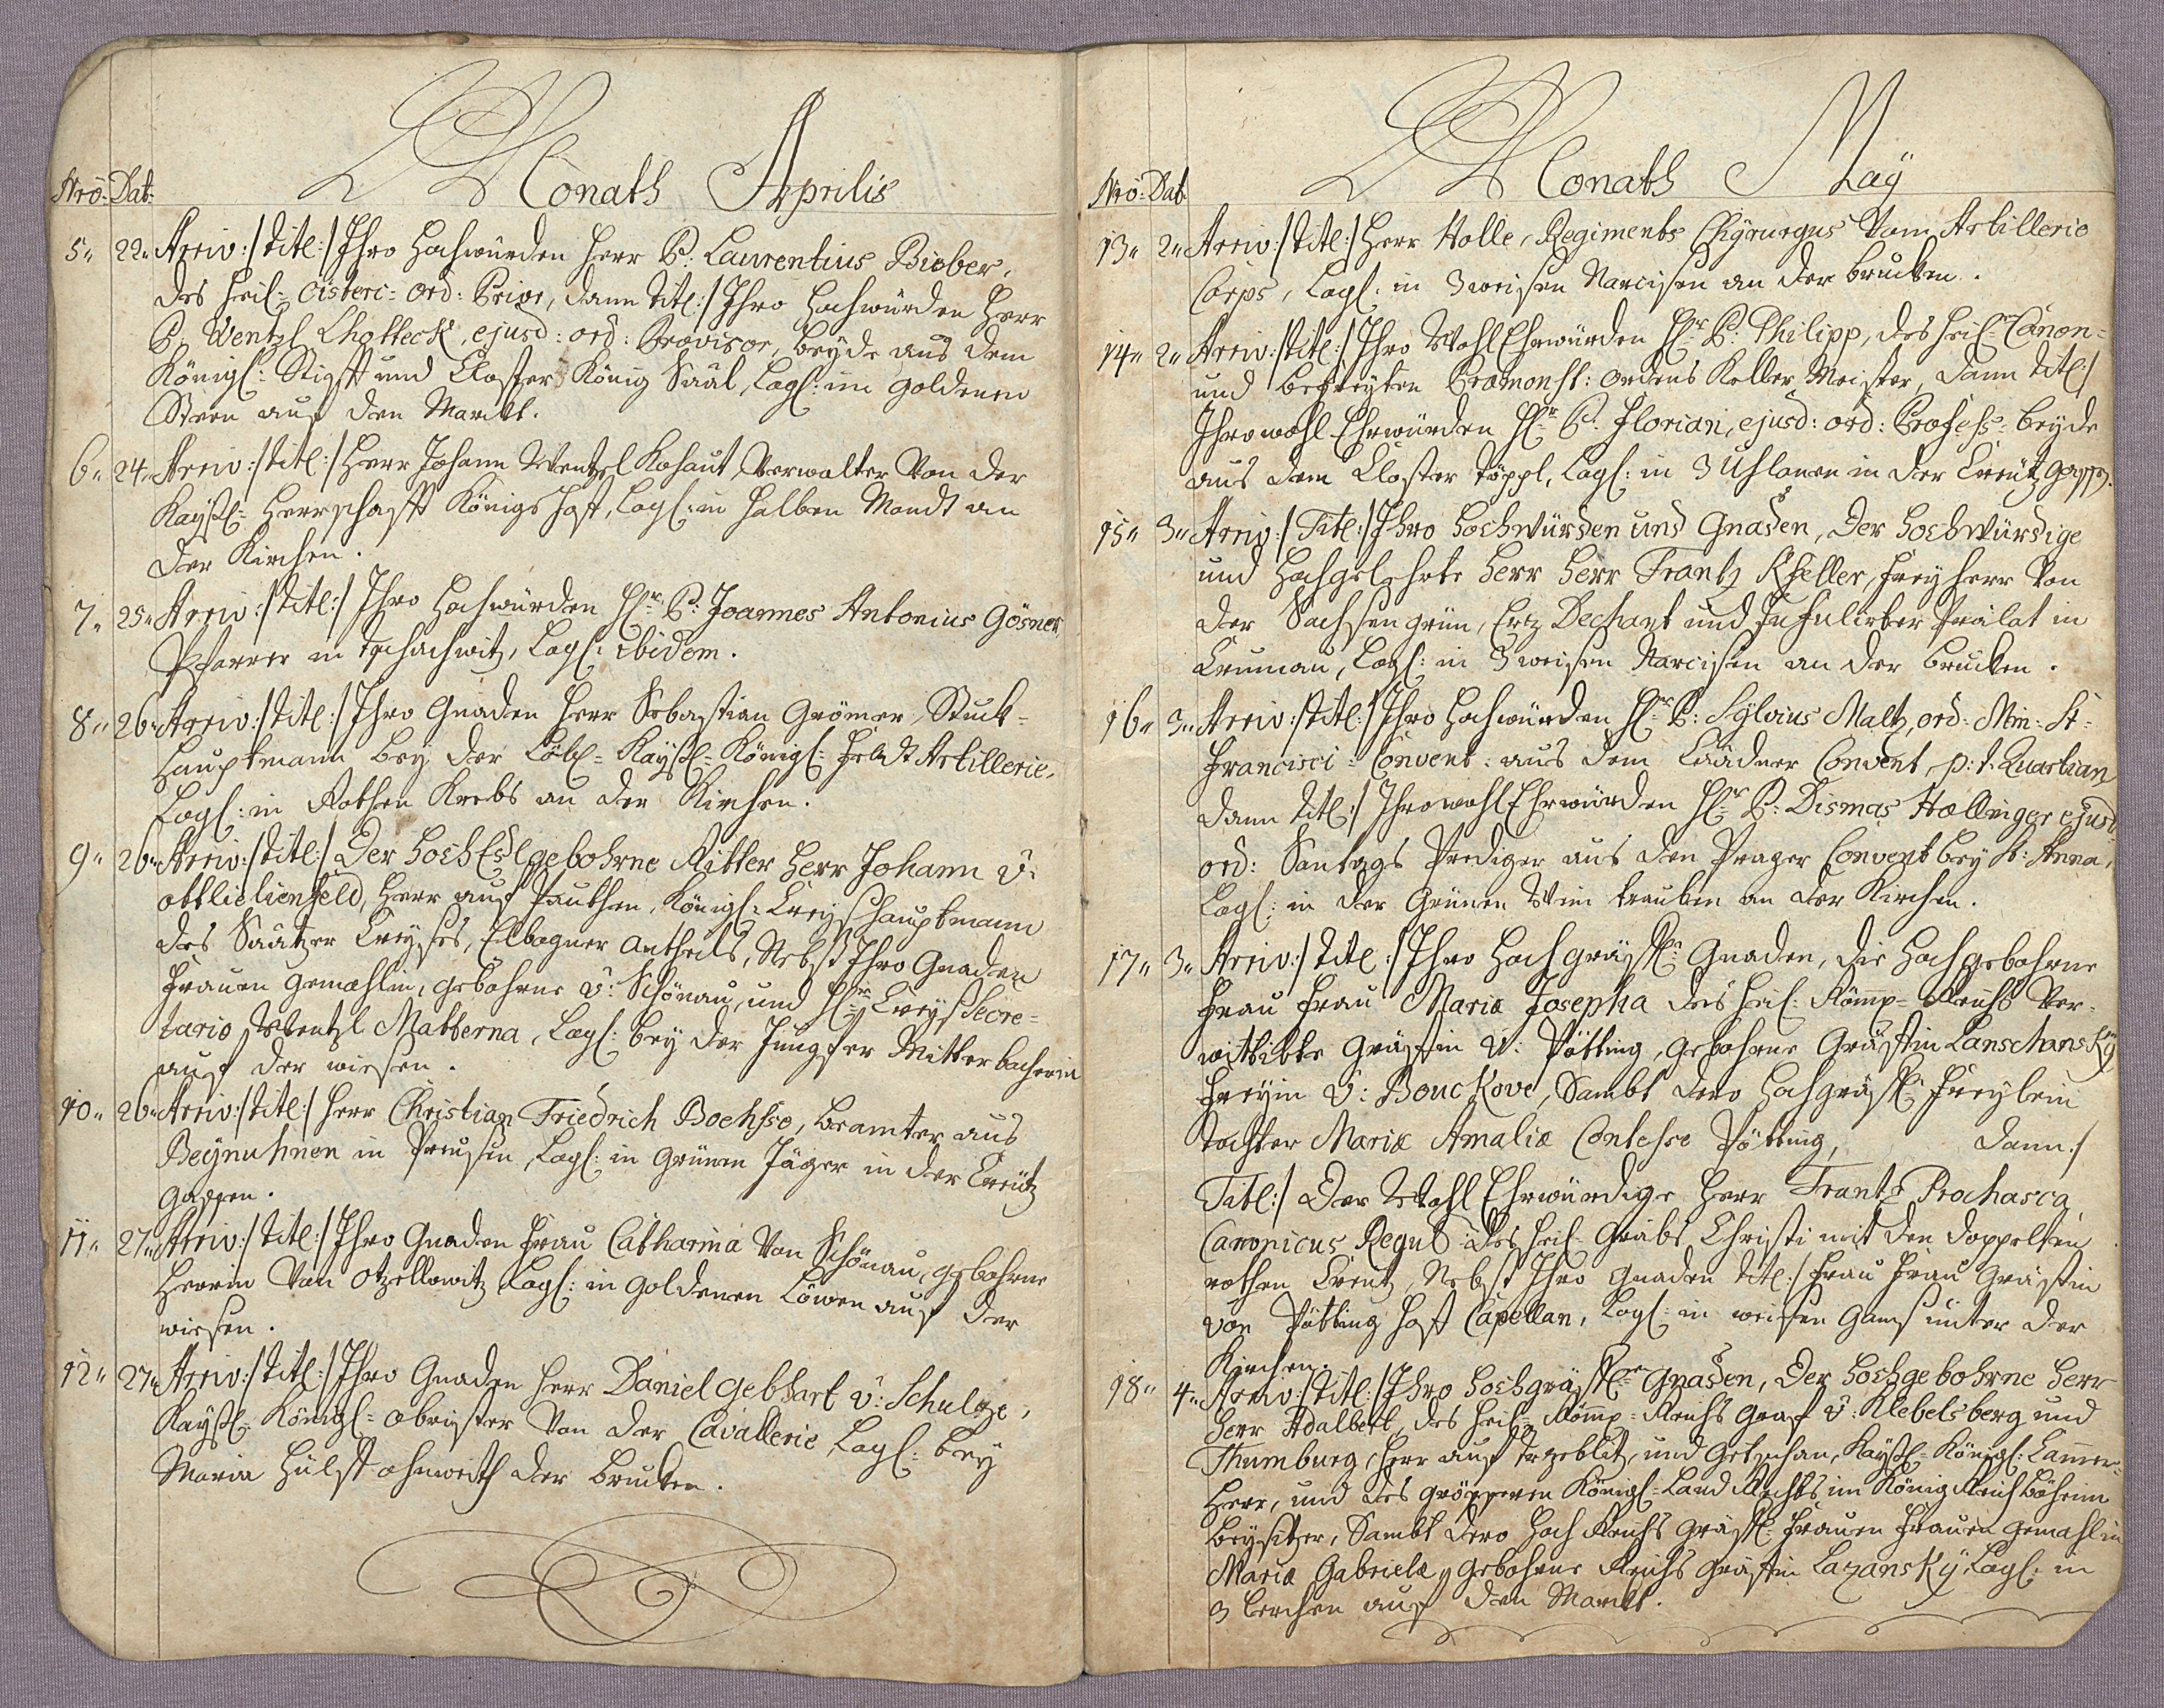 Monath Aprilis
Nro: Dat:
5. 22. Arriv:/ titl:/ Ihro Hochwürden Herr P: Laurentius Bieber,
des Heil: Cisterc: Ord: Prior, dann titl:/ Ihro Hochwürden Herr
P: Wentzl Chotteck, ejusd: ord: Provisor, beyde aus dem
Königl: Stifft und Closter König Saal, Logl: im goldenen
Stern auf den Marckt.
6. 24. Arriv:/ titl:/ Herr Johann Wentzel Kohaut, Verwalter Von der
Kaysl: Herrschafft Königshoff, Logl: in halben Mondt an
der Kirchen.
7. 25. Arriv:/ titl:/ Ihro Hochwürden Hr: P: Joannes Antonius Gösner
Pfarrer in Tschachwitz, Logl: Ibidem.
8. 26. Arriv:/ titl:/ Ihro Gnaden Herr Sebastian Grömer, Stuck-
Hauptmann bey der Löbl: Kaysl: Königl: Feldt Artillerie,
Logl: in Rothen Krebs an der Kirchen.
9. 26. Arriv:/ titl:/ Der HochEdlgebohrne Ritter Herr Johann v:
Ottlielienfeld, Herr auf Pauthen, Königl: CreysHauptmann
des Saatzer Creyses, Elbogner Antheils, Nebst Ihro Gnaden
Frauen Gemahlin, gebohrne v: Schönau, und Hr: Creys Secre-
tario Wentzl Matterna, Logl: bey der Jungfer Mitterbacherin
auf der wiesen.
10. 26. Arriv:/ titl:/ Herr Christian Friedrich Boehse, beamter aus
Beynuhnen in Preusen, Logl: in Grünen Jäger in der Creutz
gassen.
11. 27. Arriv:/ titl:/ Ihro Gnaden Frau Catharina Von Schönau, gebohrne
Herrin Von Otzellowitz Logl: in goldenen Löwen auf der
wiesen.
12. 27. Arriv:/ titl:/ Ihro Gnaden Herr Daniel Gebhart v: Schulze,
Kaysl: Königl: Obrister Von der Cavallerie Logl: bey
Maria Hülff ohnweith der brucken.
Monath May
Nro: Dat:
13. 2. Arriv:/ titl:/ Herr Nolle, Regiments Chyrurgus Vom Artillerie
Corps, Logl: in 3 weisen Narcisen an der brucken.
14. 2. Arriv:/ titl:/ Ihro WohlEhrwürden Hr: P: Philipp, des Heil: Canon-
und befreyten Præmonst: Ordens Keller Meister, dann titl:/
Ihro wohl Ehrwürden Hr: P: Florian, ejusd: ord: Profess: beyde
aus dem Closter Töppl, Logl: in 3 Uhlanen in der Creutz Gassen.
15. 3. Arriv:/ Titl:/ Ihro Hochwürden und Gnaden, Der Hochwürdige
und Hochgelehrte Herr Herr Frantz Kfeller, Freyherr Von
der Sachsengrün, Ertz Dechant und Infulirter Prælat in
Crumau, Logl: in 3 weisen Narcisen an der brucken.
16. 3. Arriv:/ titl:/ Ihro Hochwürden Hr: P: Sylvius Maltz, ord: Min: St:
Francisci: Convent: aus dem Caadner Convent, p: t: Quartian
dann titl:/ Ihro wohlEhrwürden Hr: P: Dismas Hællinger ejusd:
ord: Sontags Prediger aus den Prager Convent bey St: Anna,
Logl: in der Grünen Weintrauben an der Kirchen.
17. 3. Arriv:/ titl:/ Ihro Hochgräfl: Gnaden, die Hochgebohrne
Frau Frau Maria Josepha des Heil: Römp: Reichs Ver-
wittibte Gräfin v: Pötting, gebohrne Gräfin Lanschansky
Freyin v: Bouckove, Sambt dero Hochgräfl: Freylein
tochter Maria Amaliæ Contesse Pötting, dann:/
Titl:/ Der Wohl Ehrwürdige Herr Frantz Prochasca
Canonicus Regul: des Heil: Grabs Christi mit den doppelten
rothen Creutz, Nebst Ihro Gnaden titl:/ Frau Frau Gräfin
von Pötting Hoff Capellan, Logl: in weisen Gans unter der
Kirchen.
18. 4. Arriv:/ titl:/ Ihro Hochgräfl: Gnaden, Der Hochgebohrne Herr
Herr Adalbert, des Heil: Römp: Reichs Graf v: Klebelsberg und
Thumburg, Herr auf Trzeblitz, und Getschan, Kaysl: Königl: Cammer-
Herr, und des grösseren Königl: Land Rechts im König Reich Böheim
beysitzer, Sambt dero Hoch Reichs Gräfl: Frauen Frauen gemahlin
Maria Gabriela, gebohrne Reichs Gräfin Lazansky, Logl: in
3 Lerchen auf den Marckt.